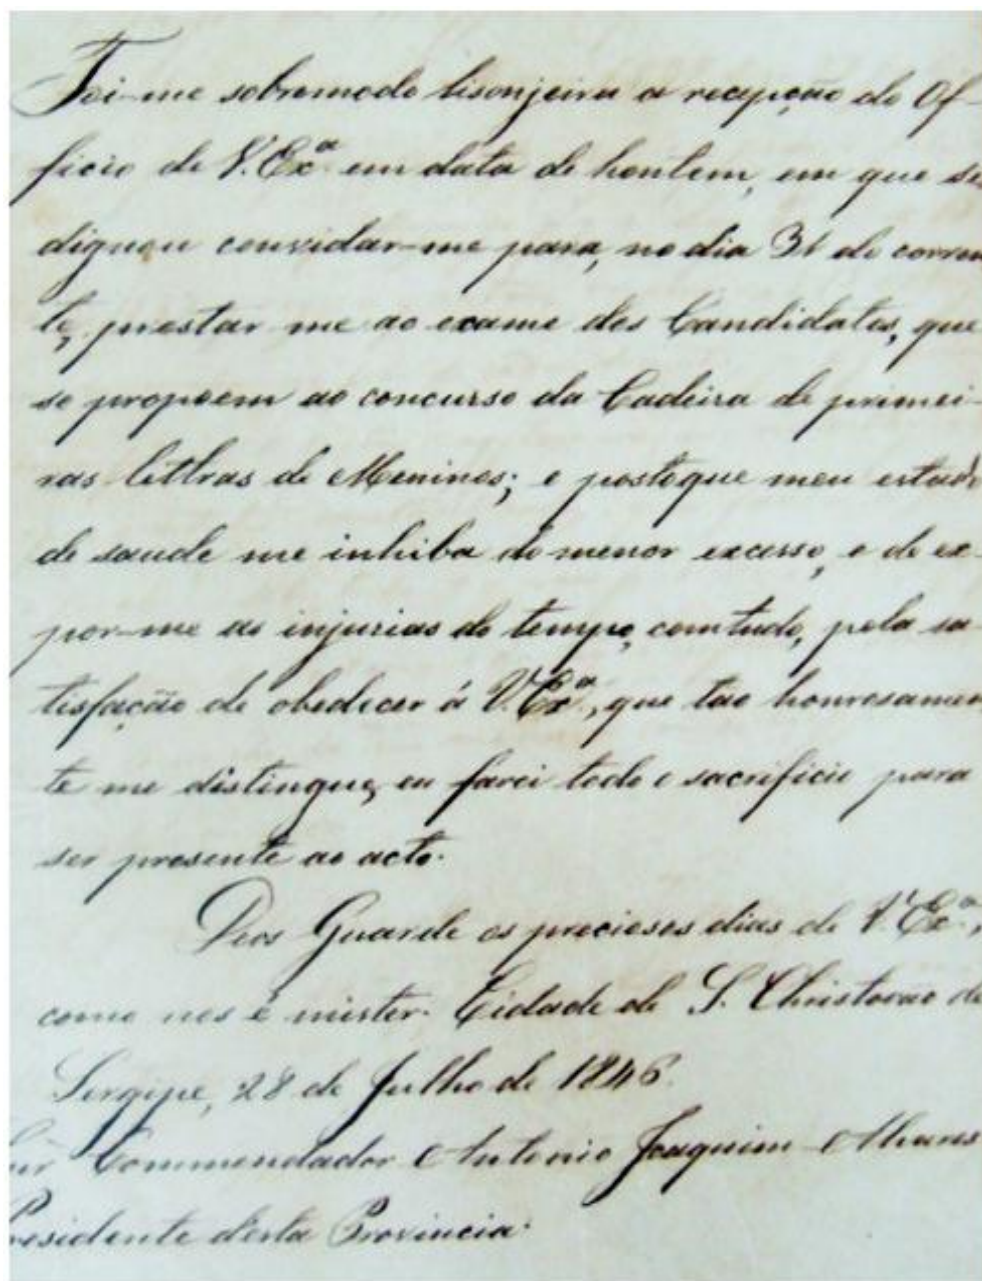 Foi-me sobremodo lisonjeira a recepção do Of-
ficio de V. Exª em data de hontem, em que se
dignou convidar-me para, no dia 31 do corren
te, prestar me ao exame dos Candidatos, que
se propoem ao concurso da Cadeira de primei-
ras lettras de Meninos; e postoque meu estado
de saude me inhiba do menor excesso, e de ex-
por-me as injurias do tempo, comtudo, pela sa-
tisfação de obedecer á V. Exª, que tão honrosamen
te me distingue, eu farei todo o sacrificio para
ser presente ao acto.
Deos Guarde os preciosos dias de V. Exª,
como nos é mister. Cidade de S. Christovão de
Sergipe, 28 de Julho de 1846.
Commendador Antonio Joaquim Alvares
Presidente desta Provincia.